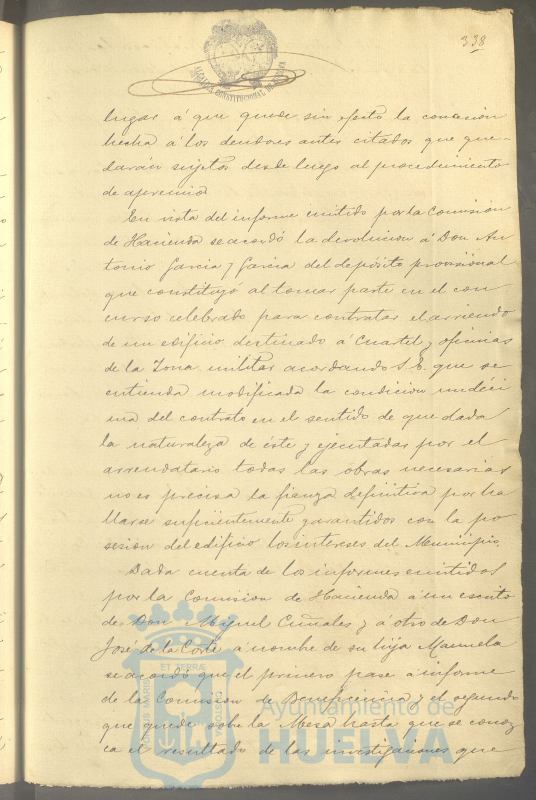 338
ALCALDIA CONSTITUCIONAL DE HUELVA
lugar á que quede sin efecto la concesion
hecha á los deudores antes citados que que-
darán sujetos desde luego al procedimiento
de apremio
En vista del informe emitido por la Comision
de Hacienda se acordó la devolucion á Don An
tonio Garcia y Garcia del depósito provisional
que constituyó al tomar parte en el con
curso celebrado para contratar el arriendo
de un edificio destinado á Cuartel y oficinas
de la Zona militar acordando S. E. que se
entienda modificada la condicion undéci
ma del contrato en el sentido de que dada
la naturaleza de éste y ejecutadas por el
arrendatario todas las obras necesarias
no es precisa la fianza definitiva por ha
llarse suficientemente garantidos con la po
sesion del edificio los intereses del Municipio.
Dada cuenta de los informes emitidos
por la Comision de Hacienda á un escrito
de Don Miguel y á otro de Don
José de la Corte á nombre de su hija Manuela
se acordó que el primero pase á informe
de la Comision de Beneficencia y el segundo
que quede sobre la Mesa hasta que se conoz
ca el resultado de las investigaciones que
PORTUS MARIS ET TERRÆ CUSTODIA
Ayuntamiento de
HUELVA